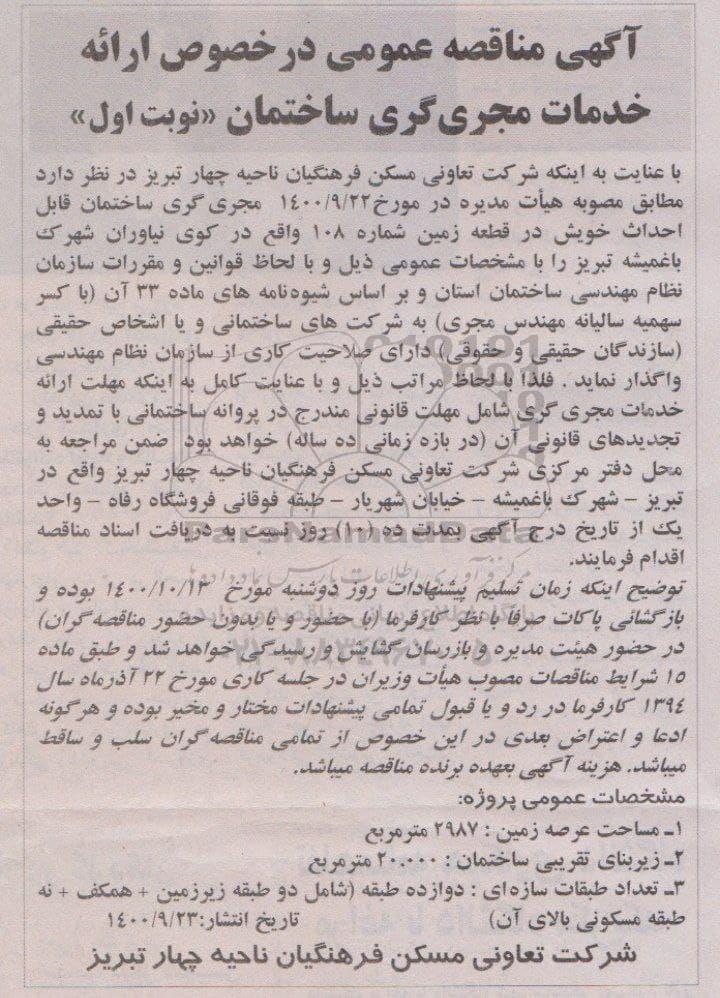 آگهی مناقصه عمومی درخصوص ارائه
خدمات مجری‌گری ساختمان «نوبت اول»
با عنایت به اینکه شرکت تعاونی مسکن فرهنگیان ناحیه چهار تبریز در نظر دارد
مطابق مصوبه هیأت مدیره در مورخ۱۴۰۰/۹/۲۲ مجری گری ساختمان قابل
احداث خویش در قطعه زمین شماره ۱۰۸ واقع در کوی نیاوران شهرک
باغمیشه تبریز را با مشخصات عمومی ذیل و با لحاظ قوانین و مقررات سازمان
نظام مهندسی ساختمان استان و بر اساس شیوه‌نامه های ماده ۳۳ آن (با کسر
سهمیه سالیانه مهندس مجری) به شرکت های ساختمانی و یا اشخاص حقیقی
(سازندگان حقیقی و حقوقی) دارای صلاحیت کاری از سازمان نظام مهندسی
واگذار نماید . فلذا با لحاظ مراتب ذیل و با عنایت کامل به اینکه مهلت ارائه
خدمات مجری گری شامل مهلت قانونی مندرج در پروانه ساختمانی با تمدید و
تجدیدهای قانونی آن (در بازه زمانی ده ساله) خواهد بود ضمن مراجعه به
محل دفتر مرکزی شرکت تعاونی مسکن فرهنگیان ناحیه چهار تبریز واقع در
تبریز – شهرک باغمیشه – خیابان شهریار – طبقه فوقانی فروشگاه رفاه – واحد
یک از تاریخ درج آگهی بمدت ده (۱۰) روز نسبت به دریافت اسناد مناقصه
اقدام فرمایند.
توضیح اینکه زمان تسلیم پیشنهادات روز دوشنبه مورخ ۱۴۰۰/۱۰/۱۳ بوده و
بازگشائی پاکات صرفا با نظر کارفرما (با حضور و یا بدون حضور مناقصه گران)
در حضور هیئت مدیره و بازرسان گشایش و رسیدگی خواهد شد و طبق ماده
۱۵ شرایط مناقصات مصوب هیأت وزیران در جلسه کاری مورخ ۲۲ آذرماه سال
۱۳۹۴ کارفرما در رد و یا قبول تمامی پیشنهادات مختار و مخیر بوده و هرگونه
ادعا و اعتراض بعدی در این خصوص از تمامی مناقصه گران سلب و ساقط
میباشد. هزینه آگهی بعهده برنده مناقصه میباشد.
مشخصات عمومی پروژه:
۱ـ مساحت عرصه زمین : ۲۹۸۷ مترمربع
۲ـ زیربنای تقریبی ساختمان : ۲۰.۰۰۰ مترمربع
۳ـ تعداد طبقات سازه‌ای : دوازده طبقه (شامل دو طبقه زیرزمین + همکف + نه
طبقه مسکونی بالای آن) تاریخ انتشار:۱۴۰۰/۹/۲۳
شرکت تعاونی مسکن فرهنگیان ناحیه چهار تبریز
ParsNamadData